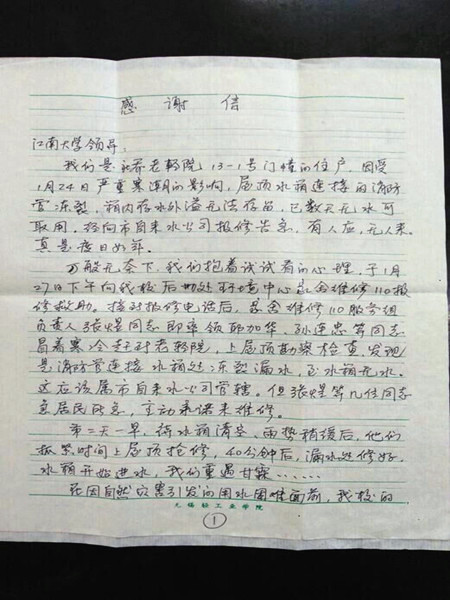 感 谢 信
江南大学领导:
我们是新荞老韩院13-1号门幢的住户,因受
1月24日严重寒潮的影响,屋顶水箱连接的消防
管冻裂,箱内存水外溢无法存留,已数天无水可
取用,经向市自来水公司报修告急,有人应,无人来。
真是度日如年。
万般无奈下,我们抱着试试看的心理,于1月
27日下午向我校后勤处环境中心宿舍维修110报
修救助。接到报修电话后,宿舍维修110服务组
负责人张煜同志即率领郦加华、孙连忠等同志
冒着寒冷赶到老韩院,上屋顶勘察检查,发现
是消防管连接水箱处冻裂漏水,至水箱无水。
这应该属市自来水公司管辖。但张煜等几位同志
急居民所急,主动承诺来维修。
第二天一早,待水箱清空,雨势稍缓后,他们
抓紧时间上屋顶抢修,40分钟后,漏水处修好,
水箱开始进水,我们重遇甘霖……
在因自然灾害引发的用水困难面前,我校的
无锡轻工业学院
1